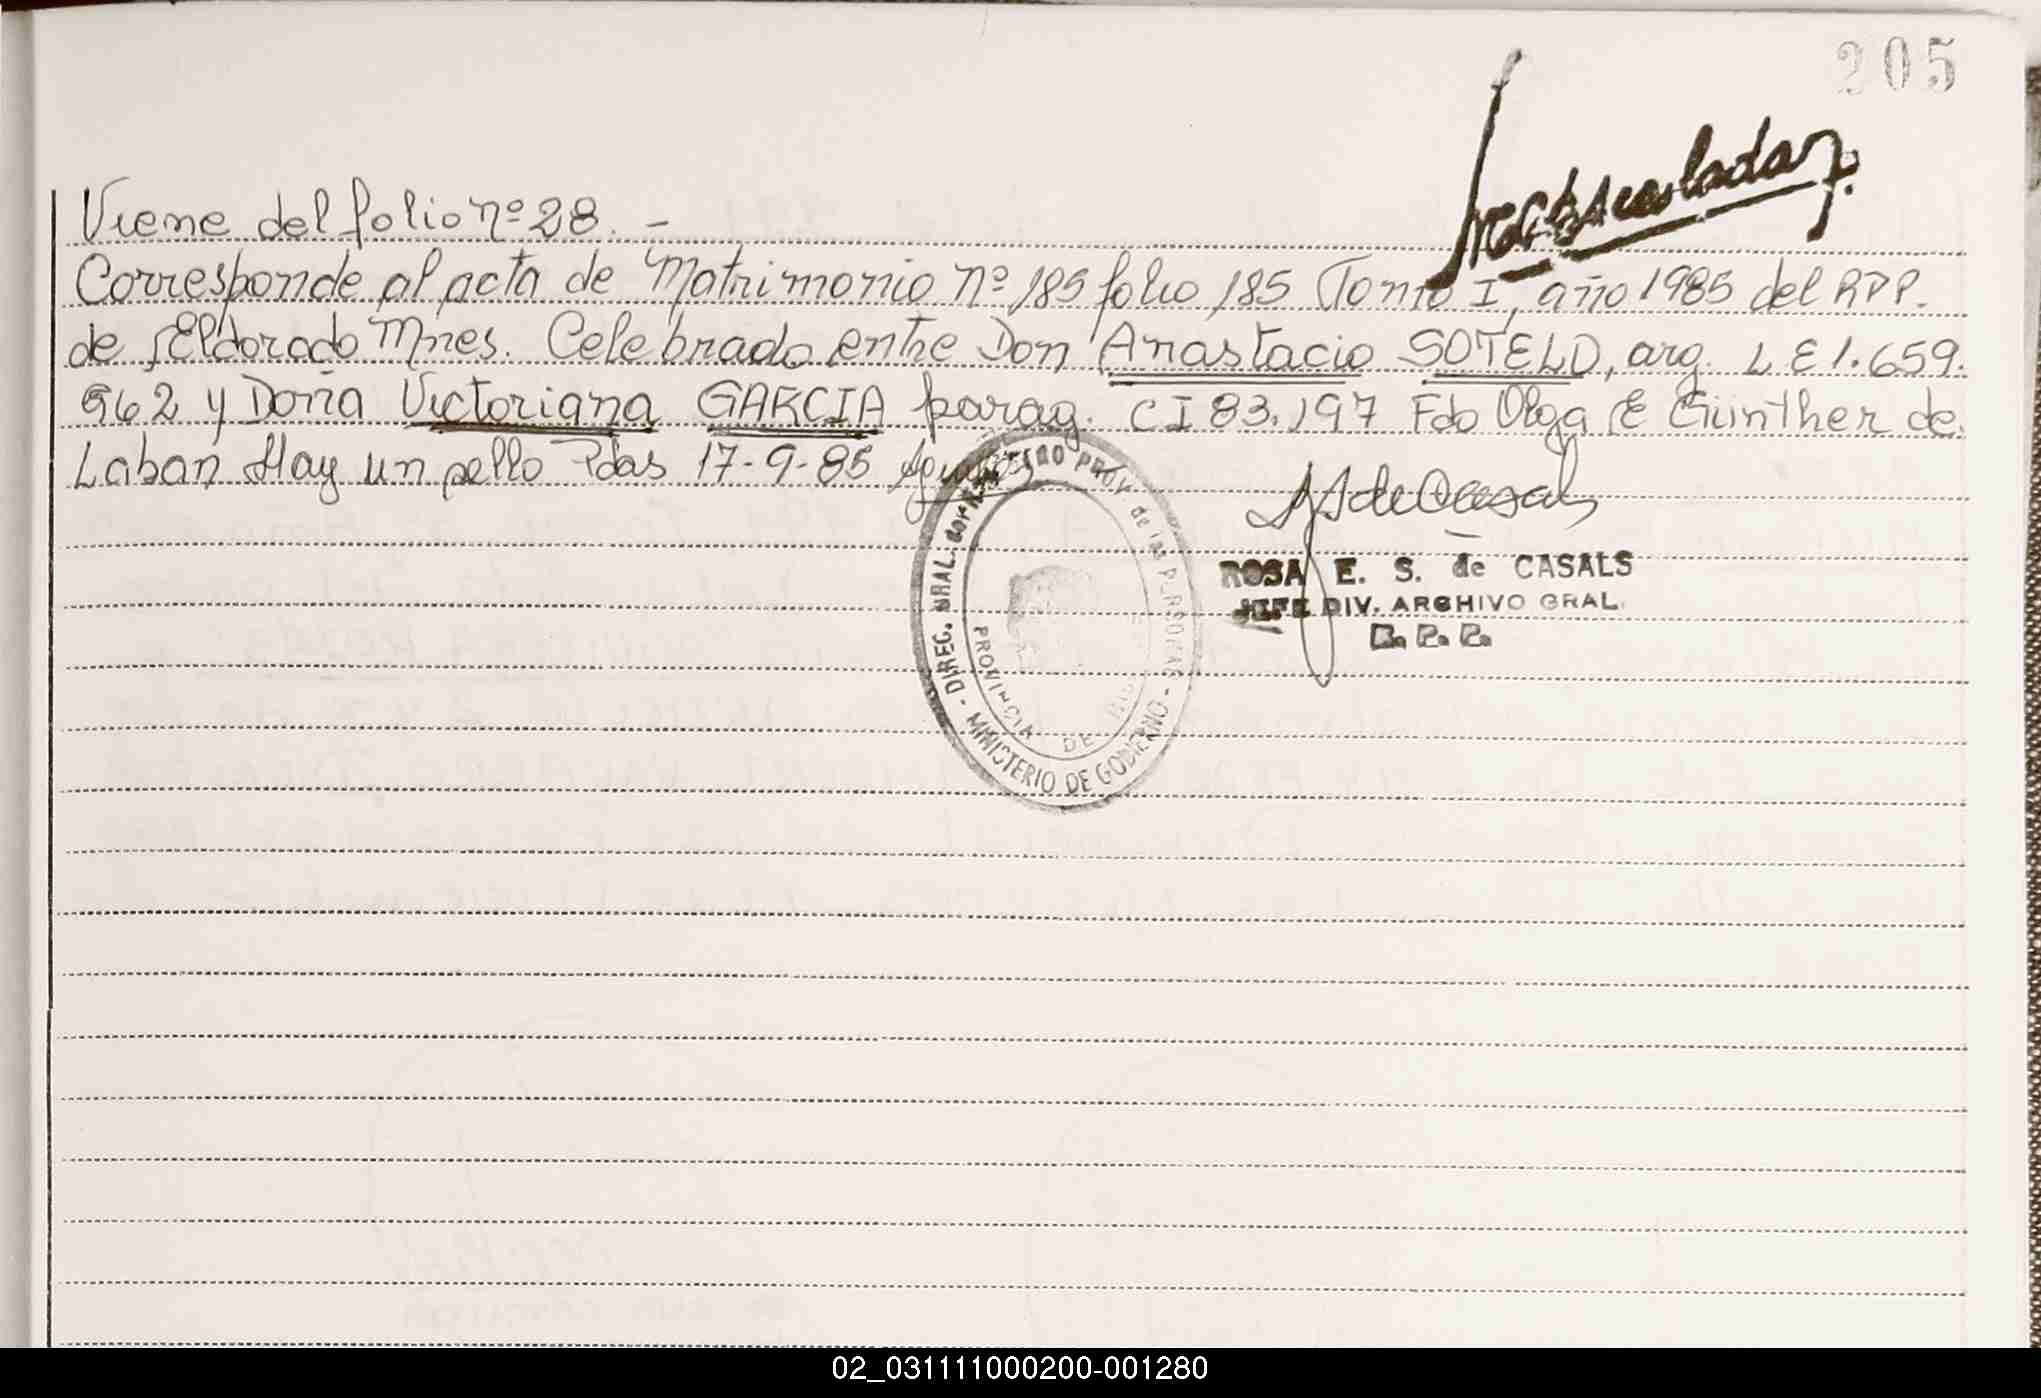 205
Viene del folio nº 28. -
Corresponde al acta de Matrimonio nº 185 folio 185 Tomo I, año 1985 del RPP.
de Eldorado Mnes. Celebrado entre Don Anastacio SOTELO, arg. L E 1.659.
962 y Doña Victoriana GARCIA parag. C I 83.197 Fdo Olga E Günther de
Laban Hay un sello Pdas 17-9-85
ROSA E. S. de CASALS
JEFE DIV. ARCHIVO GRAL.
R. P. P.
DIREC. GRAL. REGISTRO PROV. de las PERSONAS - MINISTERIO DE GOBIERNO -
PROVINCIA DE
02_031111000200-001280